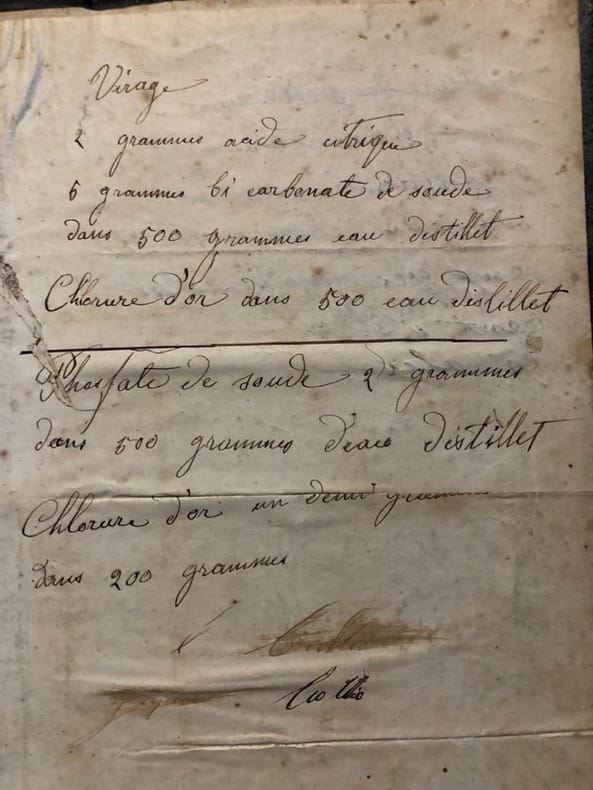 Virage
2 grammes acide citrique
6 grammes bi carbonate de soude
dans 500 grammes eau distillet
Chlorure d'or dans 500 eau distillet
Phosfate de soude 2 grammes
dans 500 grammes d'eau distillet
Chlorure d'or un demi gramme
dans 200 grammes